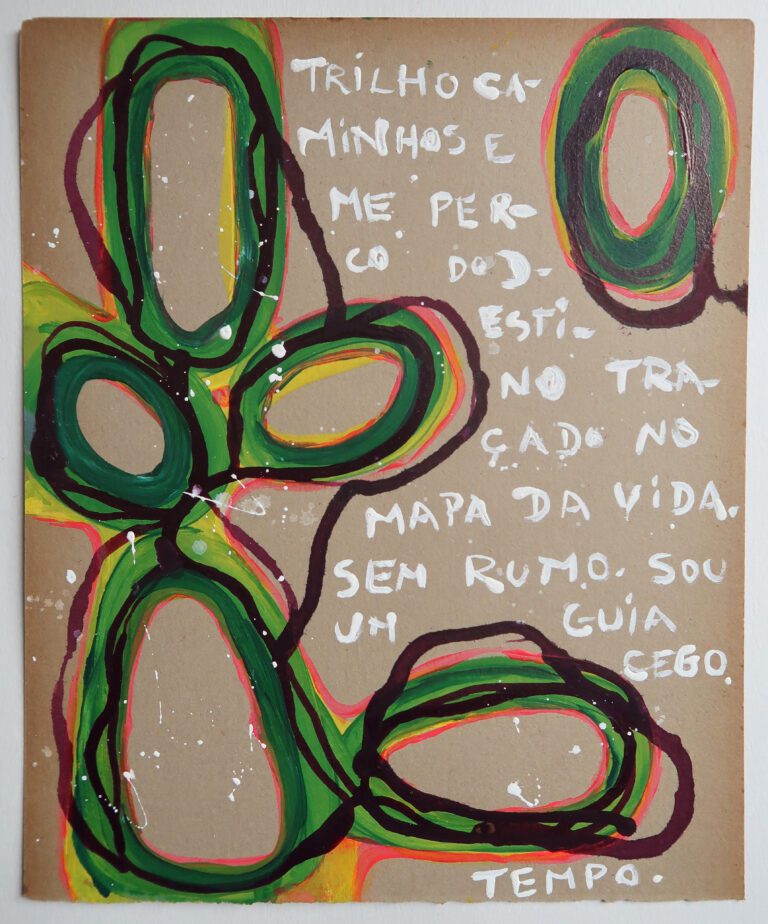 TRILHO CA-
MINHOS E
ME PER-
CO DO D-
ESTI-
NO TRA-
ÇADO NO
MAPA DA VIDA.
SEM RUMO. SOU
UM GUIA
CEGO.
TEMPO.